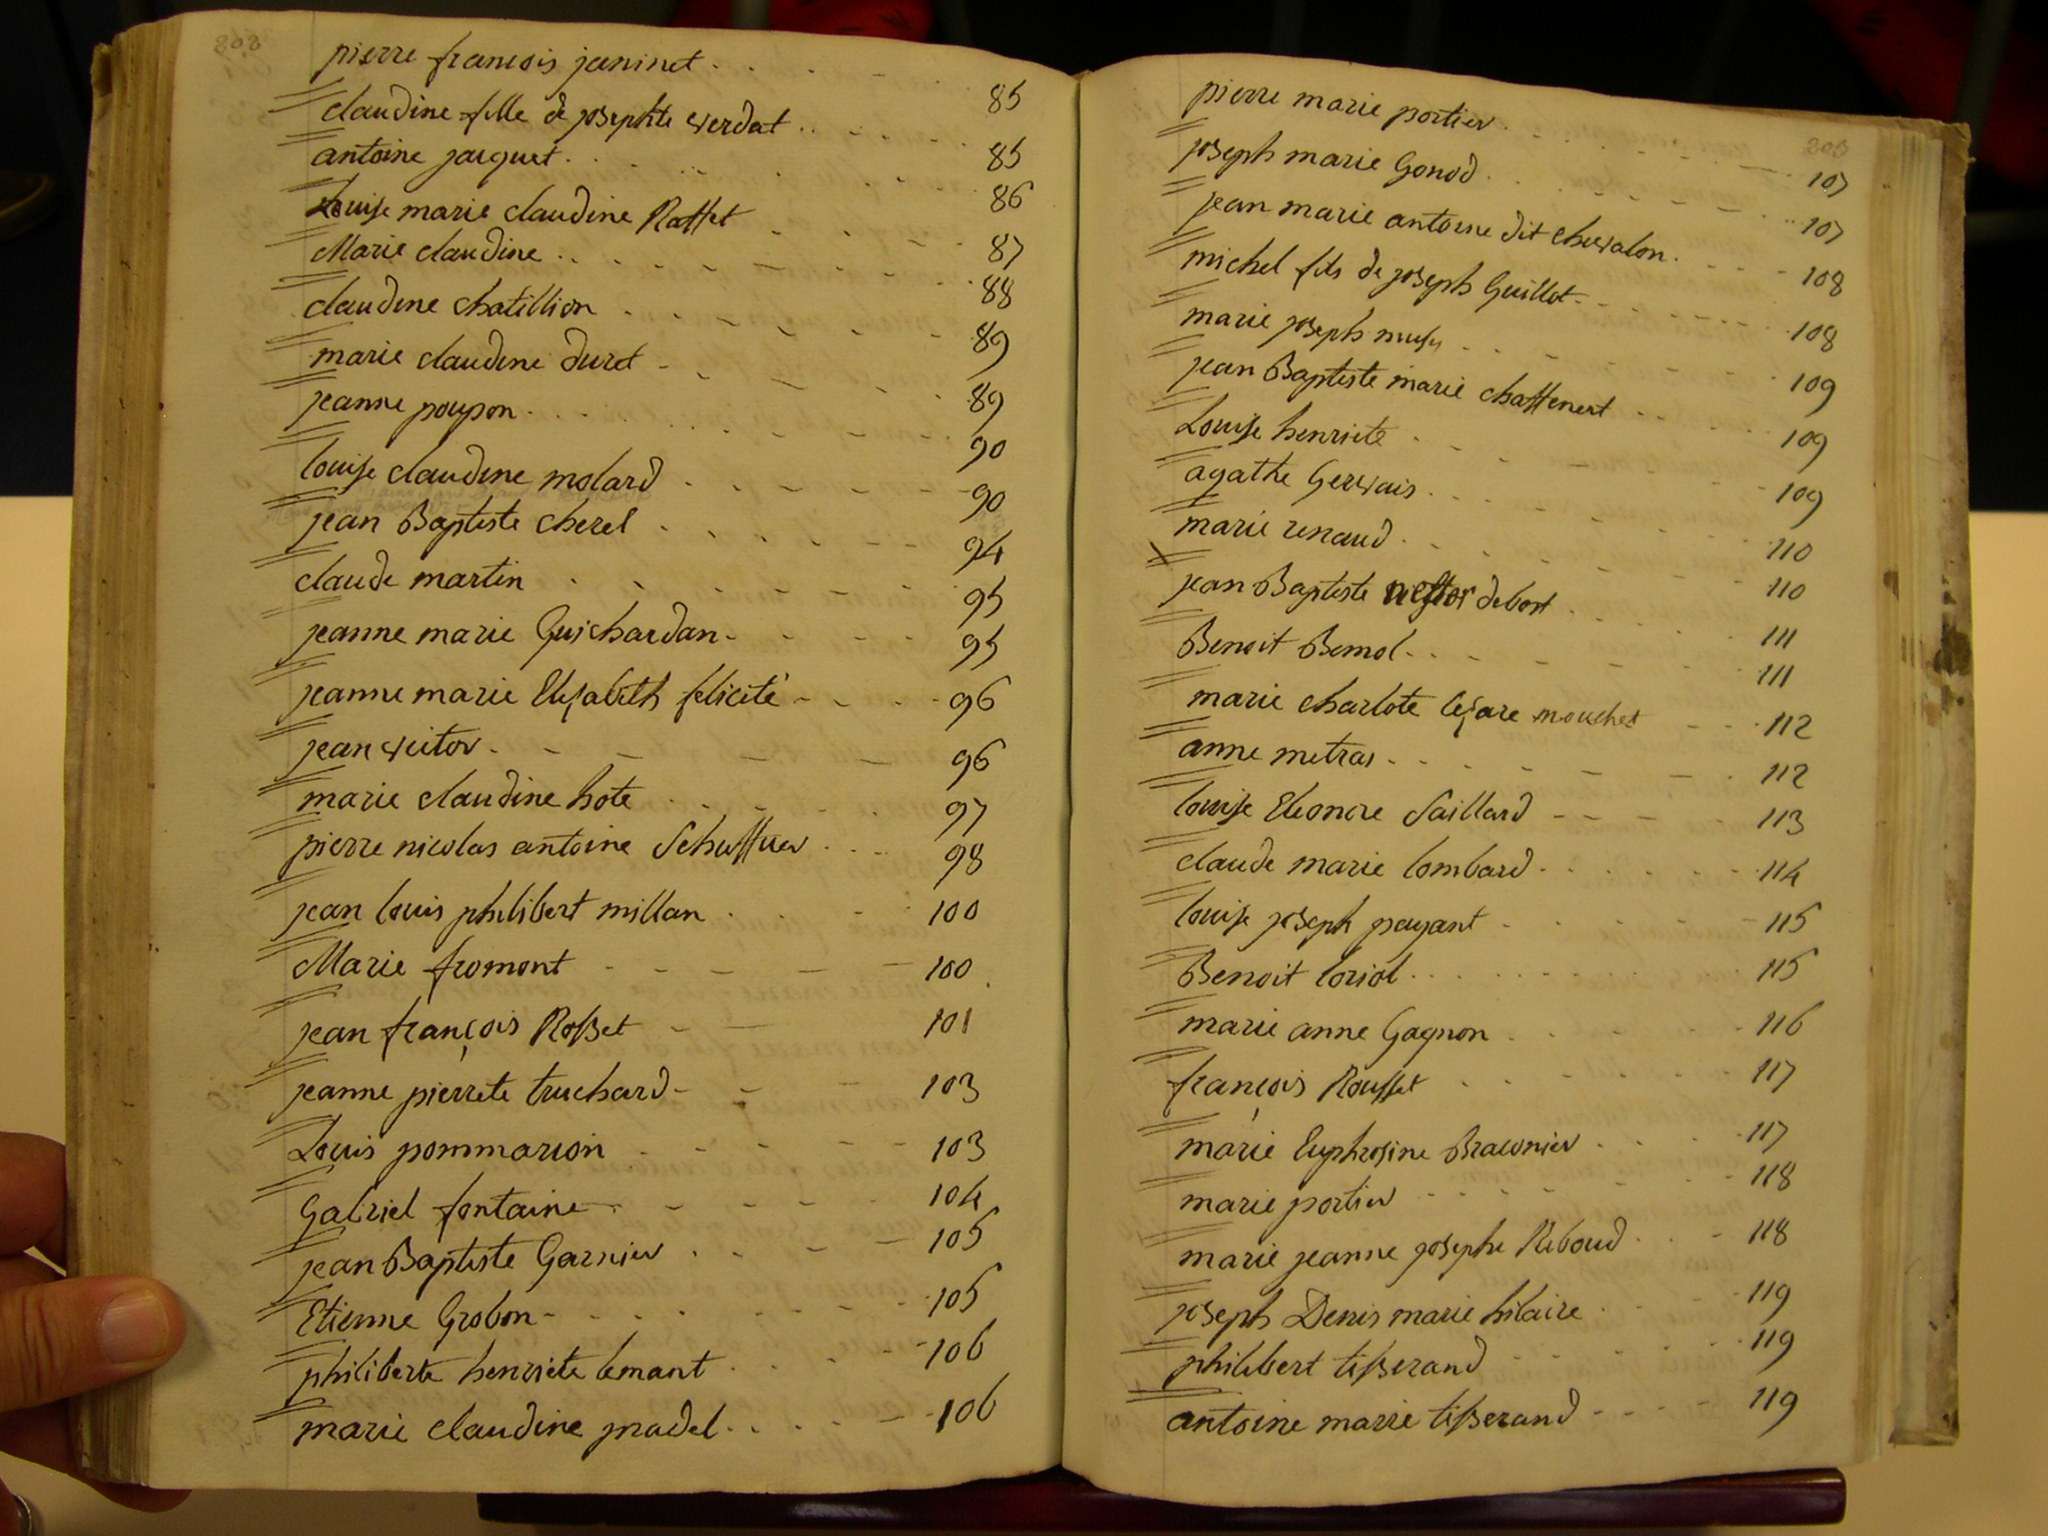 208
pierre francois janinet 85
claudine fille de josephte verdat 85
antoine jacquet 86
Louise marie claudine Raffet 87
Marie claudine 88
claudine chatillion 89
marie claudine duret 89
jeanne poupon 90
louise claudine molard 90
jean Baptiste cherel 94
claude martin 95
jeanne marie Guichardan 95
jeanne marie Elisabeth felicité 96
jean victor 96
marie claudine hote 97
pierre nicolas antoine 98
jean louis philibert millan 100
Marie fromont 100
jean françois Rosset 101
jeanne pierrete truchard 103
Louis pommarion 103
Gabriel fontaine 104
jean Baptiste Garnier 105
Etienne Grobon 105
philiberte henriete lemant 106
marie claudine pradel 106
pierre marie portier 107
joseph marie Gonod 107
jean marie antoine dit chevalon 108
michel fils de joseph Guillot 108
marie joseph 109
jean Baptiste marie 109
Louise henriete 109
agathe Gervais 110
marie renaud 110
jean Baptiste nestor debost 111
Benoit Bemol 111
marie charlote mouchet 112
anne metras 112
louise Eleonore Saillard 113
claude marie lombard 114
louise joseph payant 115
Benoit loriol 115
marie anne Gagnon 116
françois Rousset 117
marie Euphrosine 117
marie portier 118
marie jeanne josephe Riboud 118
joseph Denis marie hilaire 119
philibert tisserand 119
antoine marie tisserand 119